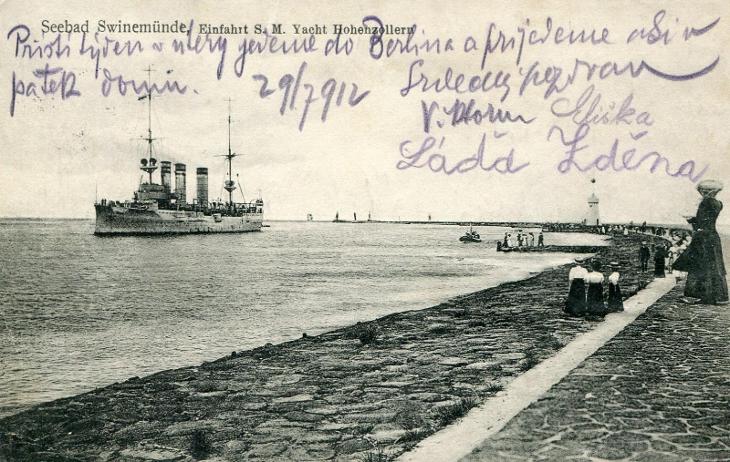 Seebad Swinemünde, Einfahrt S. M. Yacht Hohenzollern
Přisti týden v utery jedeme do Berlina a přijedeme asi v
patek domu.
29/7 912
Srdečny pozdrav
Miška
Láďa Zděna